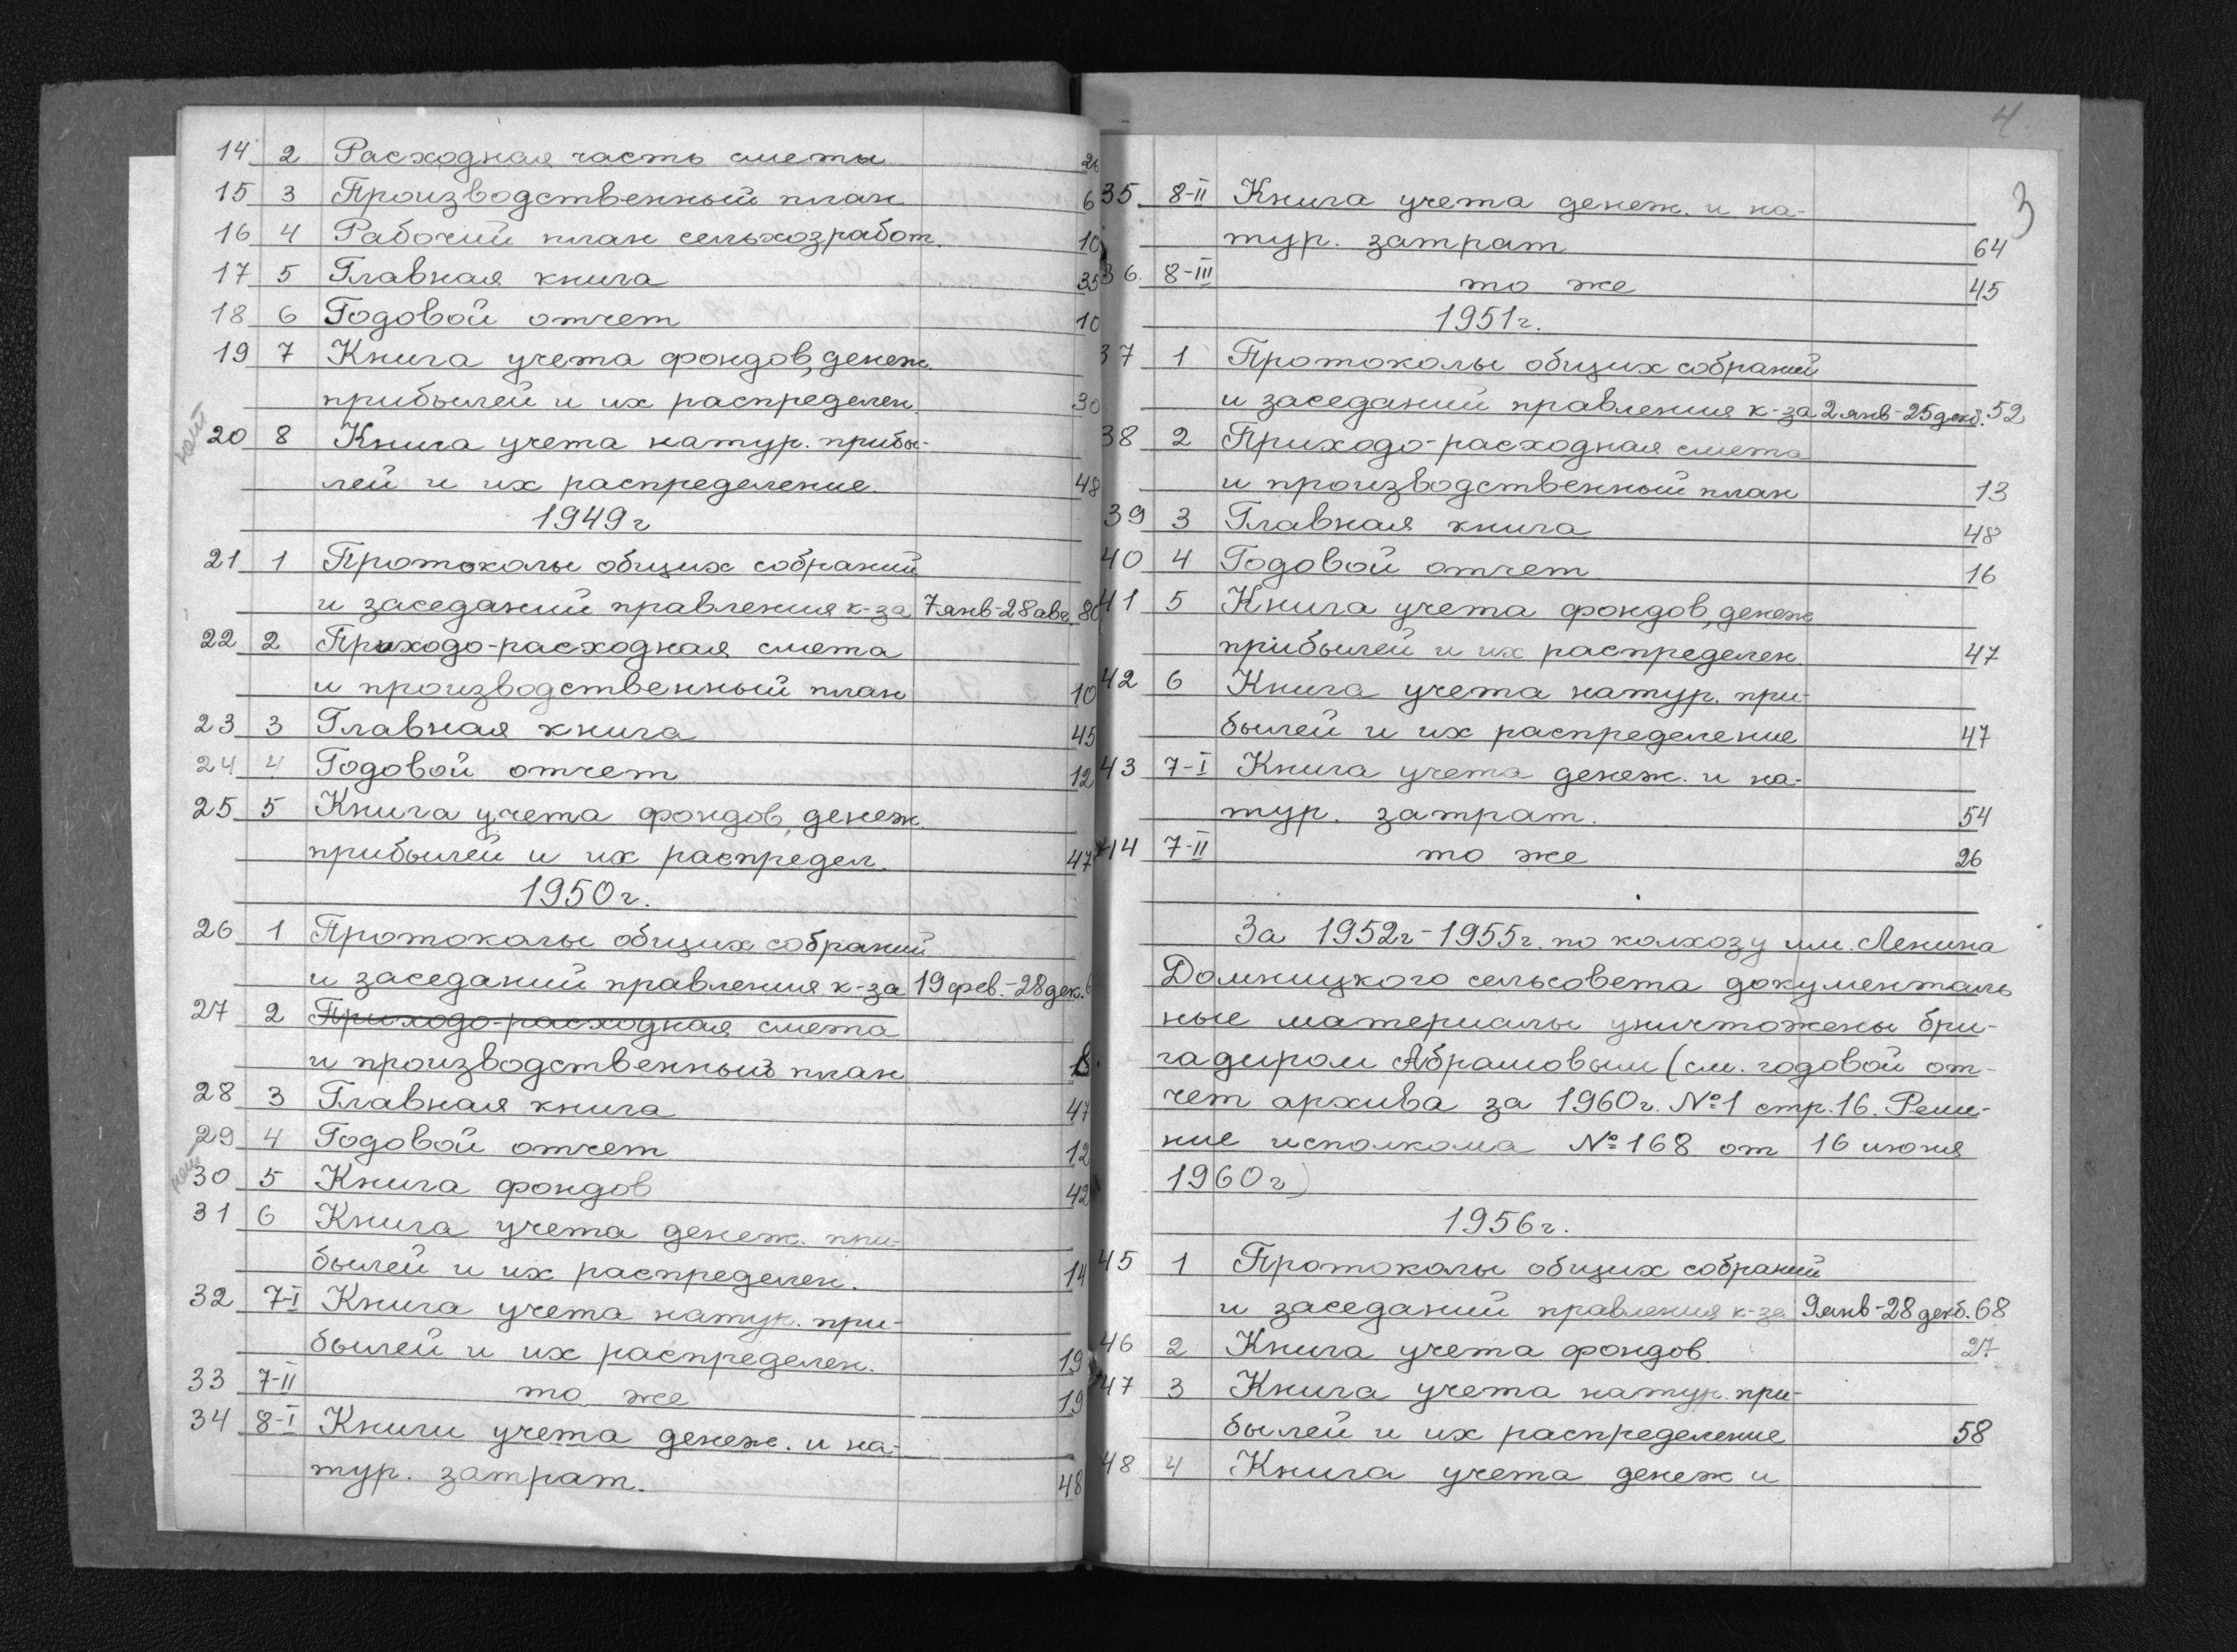 14 2 Расходная часть сметы 26
15 3 Производственный план 6
16 4 Рабочий план сельхозработ. 10
17 5 Главная книга 35
18 6 Годовой отчет 10
19 7 Книга учета фондов, денеж.
прибылей и их распределен. 30
нет
20 8 Книга учета натур. прибы-
лей и их распределение. 48
1949г
21 1 Протоколы общих собраний
и заседаний правления к-за 7 янв-28 авг. 80
22 2 Приходо-расходная смета
и производственный план 10
23 3 Главная книга 45
24 4 Годовой отчет 12
25 5 Книга учета фондов, денеж.
прибылей и их распредел. 47
1950г.
26 1 Протоколы общих собраний
и заседаний правления к-за 19 фев.-28 дек.
27 2 Приходо-расходная смета
и производственный план
28 3 Главная книга 47
29 4 Годовой отчет 12
нет
30 5 Книга фондов 42
31 6 Книга учета денеж. при-
былей и их распределен. 14
32 7-I Книга учета натур. при-
былей и их распределен. 19
33 7-II то же 19
34 8-I Книги учета денеж. и на-
тур. затрат. 48
4
3
35 8-II Книга учета денеж. и на-
тур. затрат 64
36. 8-III то же 45
1951г.
37 1 Протоколы общих собраний
и заседаний правления к-за 2 янв-25 декб. 52
38 2 Приходо-расходная смета
и производственный план 13
39 3 Главная книга 48
40 4 Годовой отчет 16
41 5 Книга учета фондов, денеж
прибылей и их распределен. 47
42 6 Книга учета натур. при-
былей и их распределение 47
43 7-I Книга учета денеж. и на-
тур. затрат. 54
44 7-II то же 26
За 1952г-1955г. по колхозу им. Ленина
Домницкого сельсовета документаль
ные материалы уничтожены бри-
гадиром Абрамовым (см. годовой от-
чет архива за 1960г. №1 стр. 16. Реше-
ние исполкома №168 от 16 июня
1960г)
1956г.
45 1 Протоколы общих собраний
и заседаний правления к-за 9 янв-28 декб. 68
46 2 Книга учета фондов. 27
47 3 Книга учета натур. при-
былей и их распределение 58
48 4 Книга учета денеж и